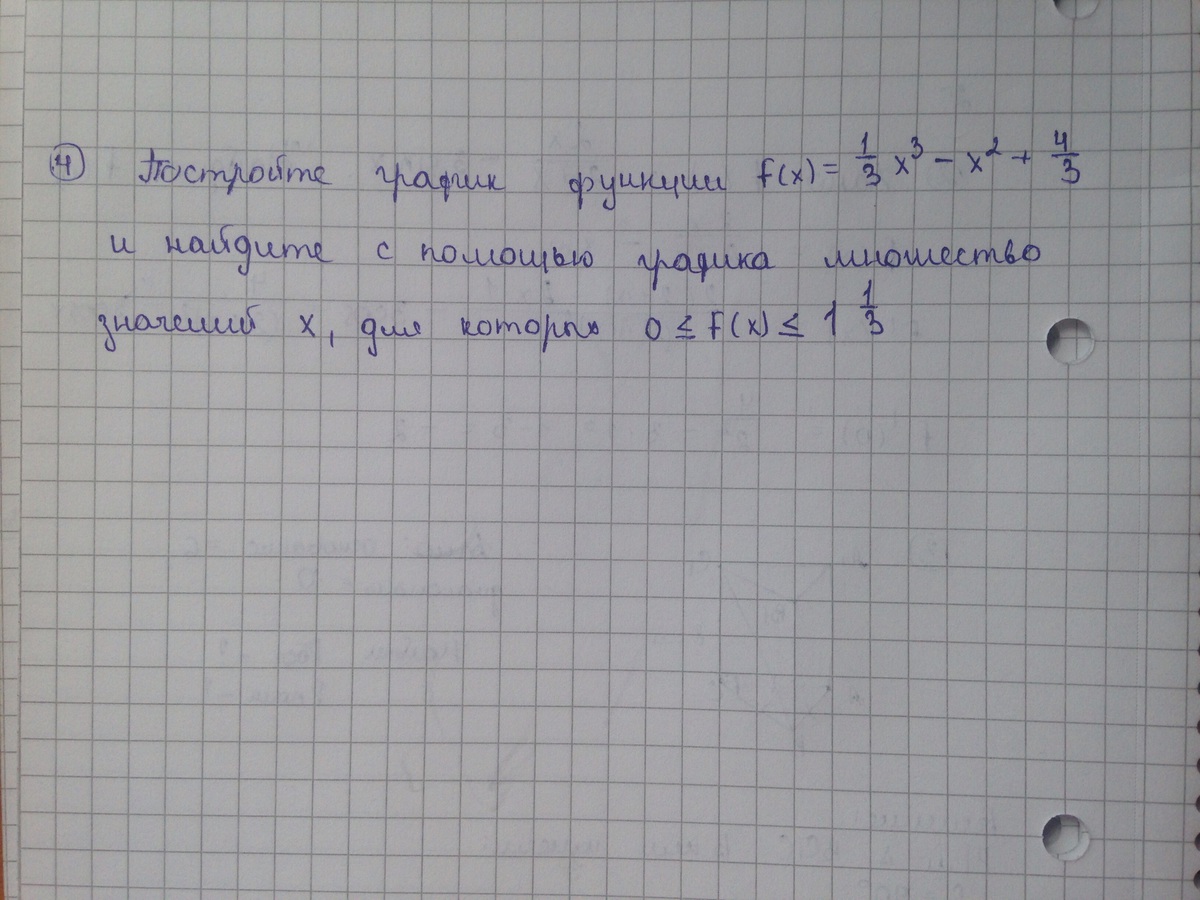 4 Постройте график функции f(x) = 1/3 x³ - x² + 4/3
и найдите с помощью графика множество
значений x, для которых 0 ≤ f(x) ≤ 1 1/3